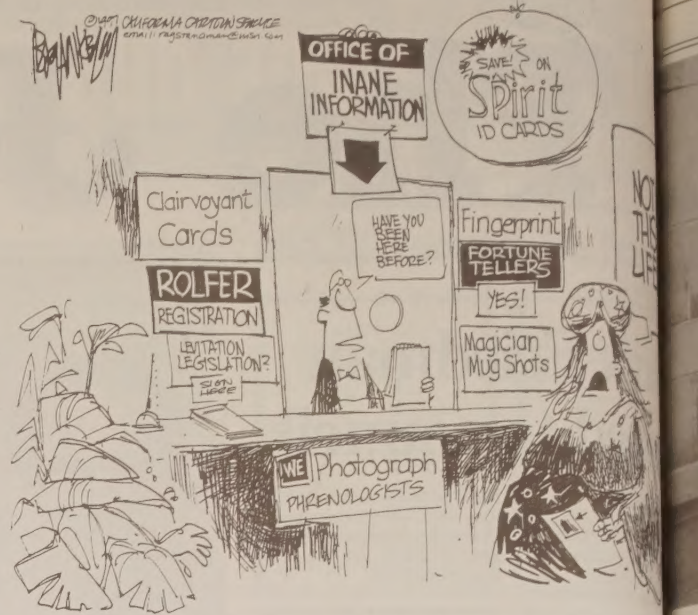 ©1997 CALIFORNIA CARTOON SERVICE
email: ragstandman@msn.com
OFFICE OF
INANE
INFORMATION
SAVE! ON
Spirit
ID CARDS
Clairvoyant
Cards
ROLFER
REGISTRATION
LEVITATION
LEGISLATION?
SIGN
HERE
HAVE YOU
BEEN
HERE
BEFORE?
Fingerprint
FORTUNE
TELLERS
YES!
Magician
Mug Shots
NOT
THIS
LIFE
WE Photograph
PHRENOLOGISTS